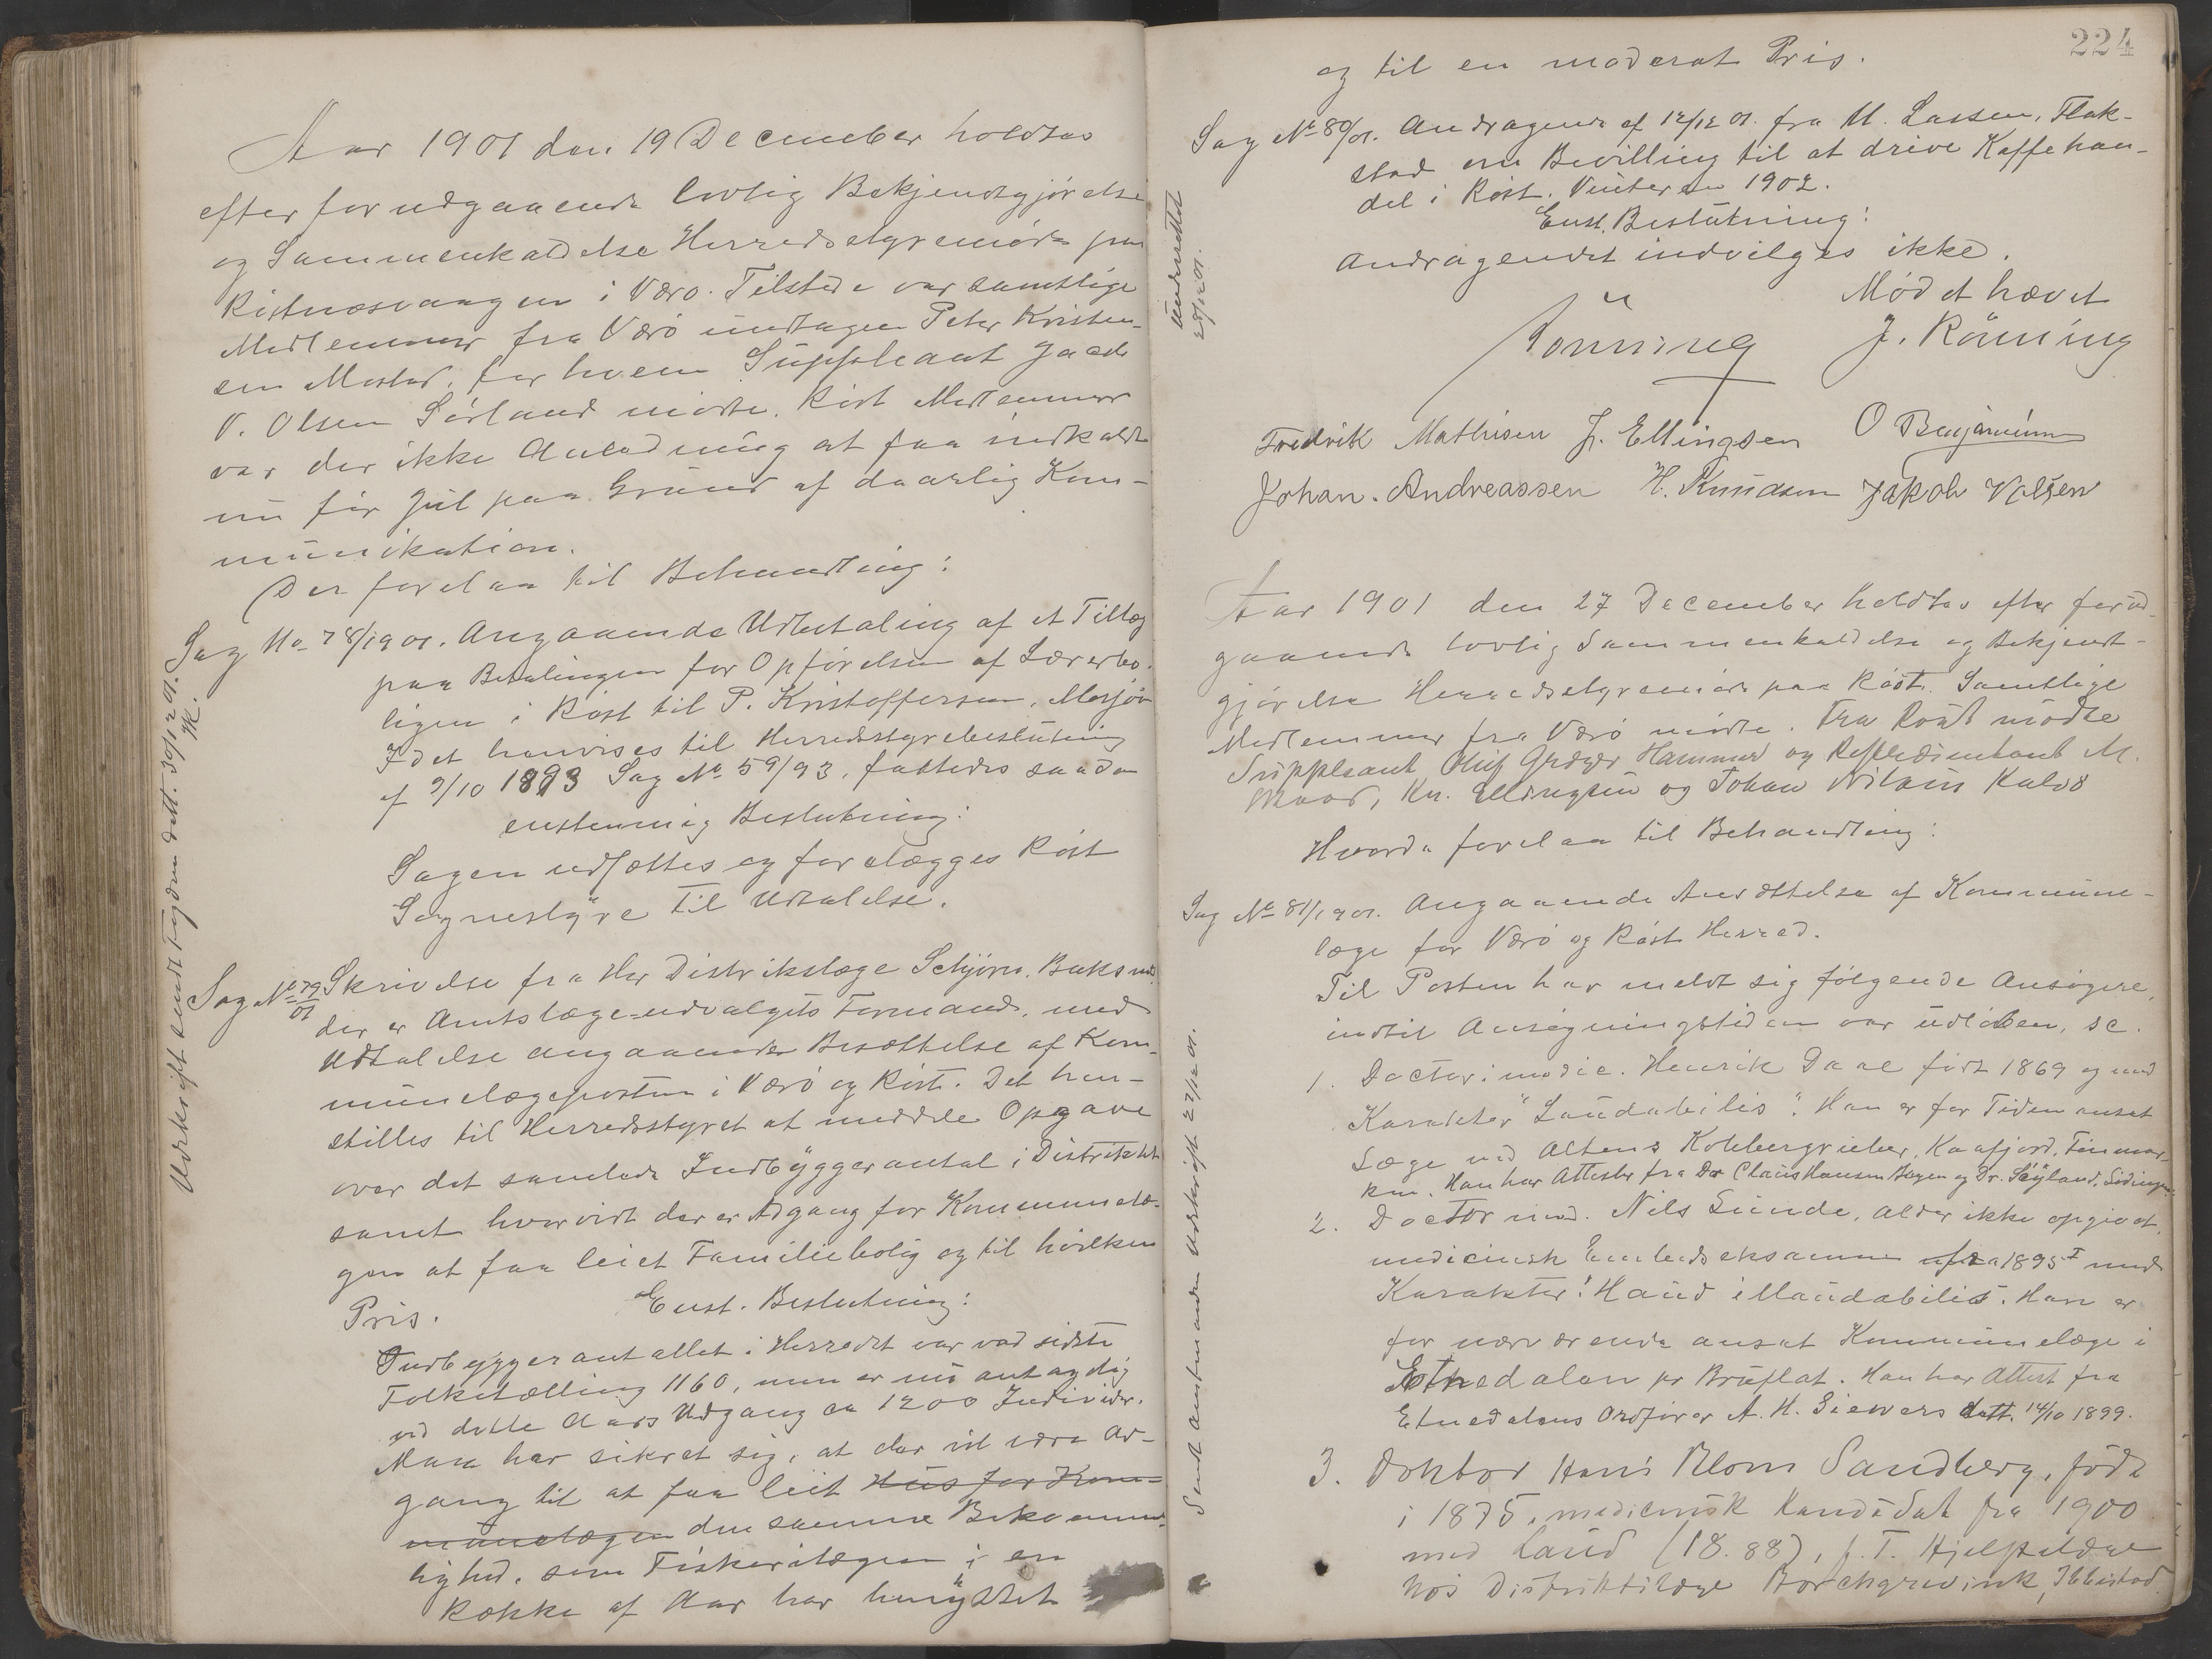 Aar 1901 den 19 December holdtes
efter forudgaaende lovlig Bekjendtgjørelse
og Sammenkaldelse Herredsstyremøde paa
i Værø. Tilstede var samtlige
Medlemmer fra Værø undtagen Peter Kristen-
sen Mostad, for hvem Suppleant
V. Olsen Sørland mødte. Røst Medlemmer
var der ikke Anledning at faa indkaldt
nu før Jul paa Grund af daarlig Kom-
munikation.
Der forelaa til Behandling:
Sag No 78/1901. Angaaende Udbetaling af et Tillæg
paa Betalingen for Opførelsen af Lærerbo-
ligen i Røst til P. Kristoffersen, Mosjøen
Idet henvises til Herredsstyrebeslutning
af 9/10 1893 Sag No 59/93, fattedes saadan
enstemmig Beslutning:
Sagen udsættes og forelægges Røst
Sognestyre til Udtalelse.
Udskrift sendt Fogden dat. 30/12 01.
JR.
Sag No 79/01 Skrivelse fra Hr Distriktslæge Schjørn, Buksnes
der er Amtslægeudvalgets Formand, med
Udtalelse angaaende Besættelse af Kom-
munelægeposten i Værø og Røst. Det hen-
stilles til Herredsstyret at meddele Opgave
over det samlede Indbyggerantal i Distriktet
samt hvorvidt der er Adgang for Kommunelæ-
gen at faa leiet Familiebolig og til hvilken
Pris. Enst. Beslutning:
Indbyggerantallet i Herredet var ved sidste
Folketælling 1160, men er nu antagelig
ved dette Aars Udgang ca 1200 Individer.
Man har sikret sig, at der vil være Ad-
gang til at faa leiet Hus for Kom-
munelægen den samme Bekvemme-
lighed, som Fiskerilægen i en
Række af Aar har benyttet
224
og til en moderat Pris.
Sag No 80/01. Andragende af 12/12 01. fra M. Lassen, Flak-
stad om Bevilling til at drive Kaffehan-
del i Røst. Vinteren 1902.
Enst. Beslutning:
Andragendet indvilges ikke.
Underrettet
28/12 01.
Mødet hævet
Rönning J. Rönning
Fredrik Mathisen J. Ellingsen O Benjaminsen
Johan. Andreassen H. Knudsen Jakob V Olsen
Aar 1901 den 27 December holdtes efter forud-
gaaende lovlig Sammenkaldelse og Bekjendt-
gjørelse Herredsstyremøde paa Røst. Samtlige
Medlemmer fra Værø mødte. Fra Røst mødte
Suppleant Oluf Greger Hammer og Repræsentant M.
Kr. Ellingsen og Johan Nilsen Kalvø
Hvorda forelaa til Behandling:
Sag No 81/1901. Angaaende Ansættelse af Kommune-
læge for Værø og Røst Herred.
Til Posten har meldt sig følgende Ansøgere,
indtil Ansøgningstiden var udløben, sc.
1. Doctor i medic. Henrik Daae født 1869 og med
Karakter "Laudabilis". Han er for Tiden ansat
Læge ved Altens Kobbergruber, Kaafjord, Finmar-
ken. Han har Attester fra Dr Claus Hansen Bergen og Dr. Løgland, Lødingen.
2. Doctor med. Nils Sunde, Alder ikke opgivet,
medicinsk Embedseksamen fra 1895 I med
Karakter: Haud illaudabilis. Han er
for nærværende ansat Kommunelæge i
Etnedalen pr Bruflat. Han har Attest fra
Etnedalens Ordfører A. H. Siewers datt. 14/10 1899.
3. Doktor Hans Blom Sandberg, født
i 1875, medicinsk Kandidat fra 1900
med laud (18.88), f. T. Hjelpelæge
hos Distriktslæge Borchgrevink, Ibbestad
Sendt ansøgerne Udskrift 27/12 01.